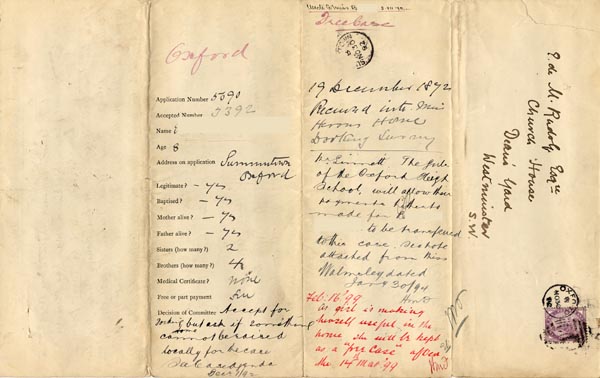 Oxford
Application Number 5390
Accepted Number 5392
Name
Age 8
Address on application Summertown
Oxford
Legitimate? - yes
Baptised? - yes
Mother alive? - yes
Father alive? - yes
Sisters (how many?) 2
Brothers (how many?) 4
Medical Certificate? none
Free or part payment
Decision of Committee Accept for
but ask if
cannot be raised
locally for the case
Free Case
19 December 1892
Received into Miss
Home
Dorking Surrey
The girls
of the Oxford High
School, will allow their
payments hitherto
made for B
to be transferred
to this case. See note
attached from Miss
Walmsley dated
Jan 30/94
Feb. 16 '99
As girl is making
herself useful in the
home she will be kept
as a "free case" after
the 14 Mar '99
E. de M. Rudolf Esqre
Church House
Deans Yard
Westminster
S.W.